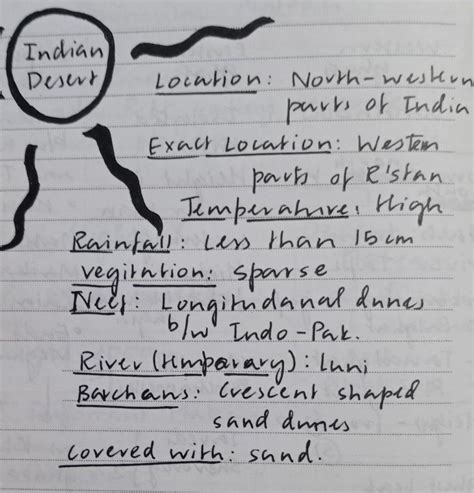 Indian
Desert
Location: North-western
parts of India
Exact Location: Western
parts of R'stan
Temperature: High
Rainfall: Less than 15cm
vegitation: sparse
Longitudanal dunes
b/w Indo-Pak.
River (temporary): Luni
Barchans: Crescent shaped
sand dunes
covered with: sand.